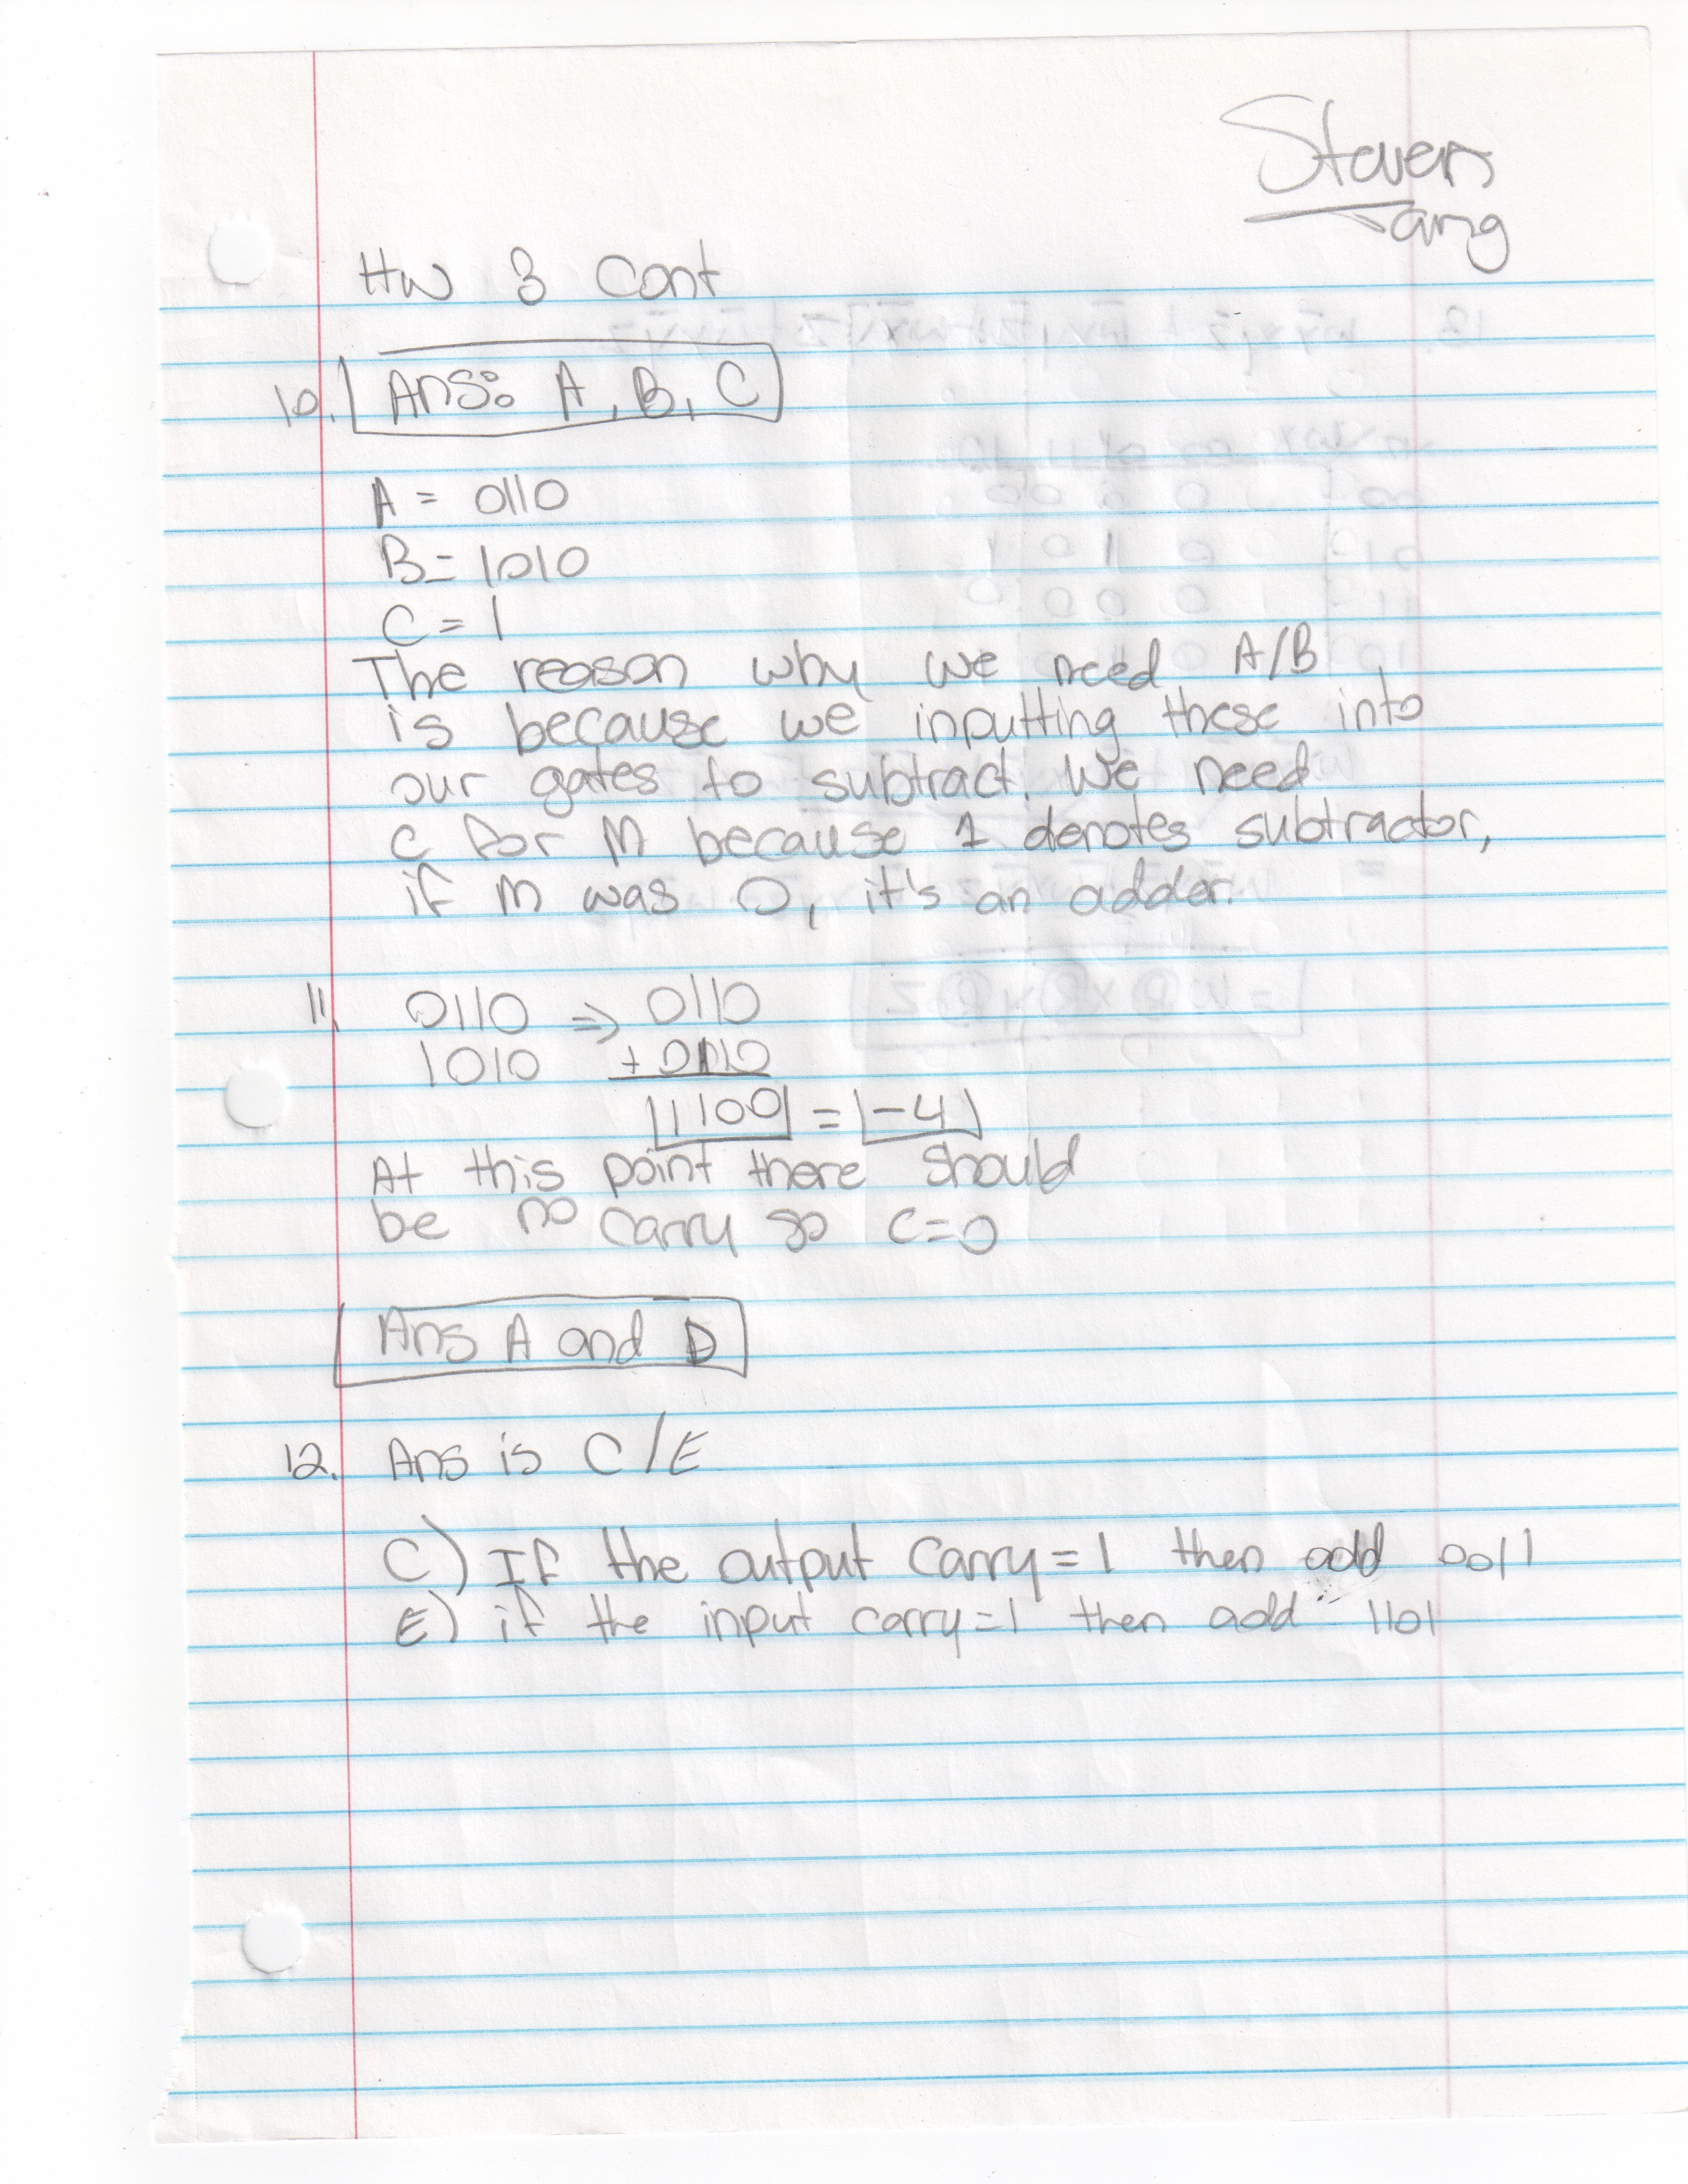 Steven
Tang
HW 3 Cont
10. Ans: A, B, C
A = 0110
B = 1010
C = 1
The reason why we need A/B
is because we inputting these into
our gates to subtract. We need
C for M because 1 denotes subtractor,
if M was 0, it's an adder.
11. 0110 => 0110
1010 + 0110
1100 = -4
At this point there should
be no carry so C=0
Ans A and D
12. Ans is C/E
C) If the output carry=1 then add 0011
E) if the input carry=1 then add 1101